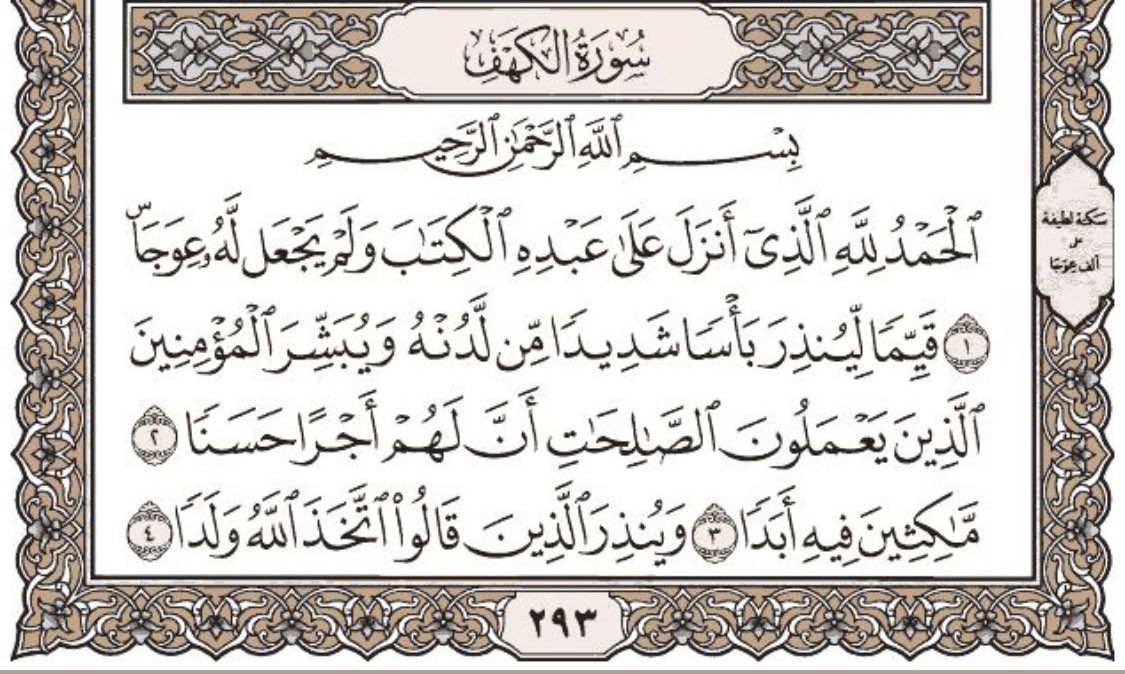 سُورَةُ الكَهۡفِ
بِسۡمِ ٱللَّهِ ٱلرَّحۡمَٰنِ ٱلرَّحِيمِ
ٱلۡحَمۡدُ لِلَّهِ ٱلَّذِيٓ أَنزَلَ عَلَىٰ عَبۡدِهِ ٱلۡكِتَٰبَ وَلَمۡ يَجۡعَل لَّهُۥ عِوَجَاۜ
١ قَيِّمٗا لِّيُنذِرَ بَأۡسٗا شَدِيدٗا مِّن لَّدُنۡهُ وَيُبَشِّرَ ٱلۡمُؤۡمِنِينَ
ٱلَّذِينَ يَعۡمَلُونَ ٱلصَّٰلِحَٰتِ أَنَّ لَهُمۡ أَجۡرًا حَسَنٗا ٢
مَّٰكِثِينَ فِيهِ أَبَدٗا ٣ وَيُنذِرَ ٱلَّذِينَ قَالُواْ ٱتَّخَذَ ٱللَّهُ وَلَدٗا ٤
سَكتة لطيفة
على
ألف عِوَجَا
٢٩٣